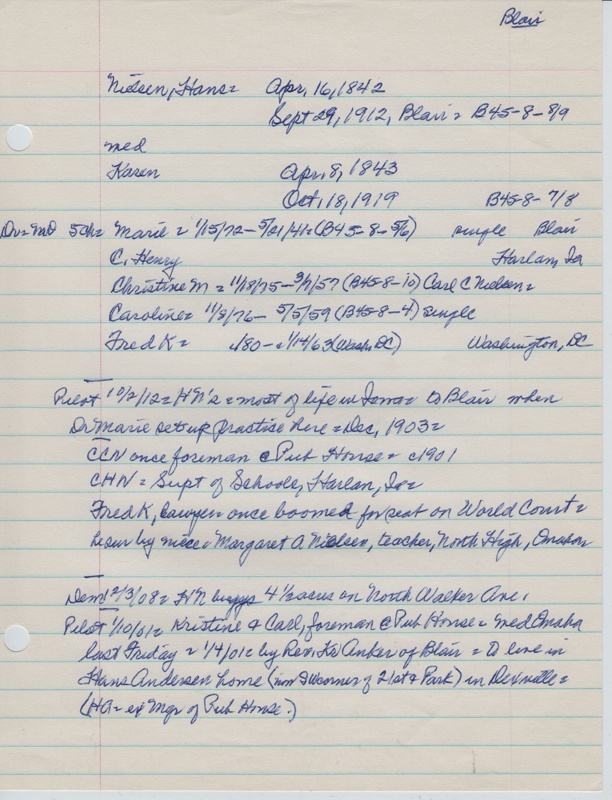 Blair
Nielsen, Hans = Apr, 16, 1842
Sept 29, 1912, Blair = B45-8-8/9
med
Karen Apr, 8, 1843
Oct, 18, 1919 B45-8-7/8
Dr = md 5 ch = Marie = 1/15/72 - 5/21/41 = (B45-8-5/6) single Blair
C. Henry Harlan, Ia
Christine M = 11/18/75 - 3/7/57 (B45-8-10) Carl C Nielsen =
Caroline = 11/8/76 - 5/5/59 (B45-8-4) single
Fred K = c/80 - 1/14/63 (Wash, DC) Washington, DC
Pilot 10/2/12 = HN's = most of life in Iowa = to Blair when
Dr Marie set up practise here = Dec, 1903 =
CCN once foreman @ Pub House = c1901
CHN = Supt of Schools, Harlan, Ia =
Fred K, lawyer = once boomed for seat on World Court =
by niece = Margaret A Nielsen, teacher, North High, Omaha
Dem 12/3/08 = HN buys 4 1/2 acres on North Walker Ave,
Pilot 1/10/01 = Kristine & Carl, foreman @ Pub House = med Omaha
last Friday = 1/4/01 = by Rev, Kr Anker of Blair = to live in
Hans Andersen home ( corner of 21st & Park) in =
(HA = ex Mgr of Pub House.)